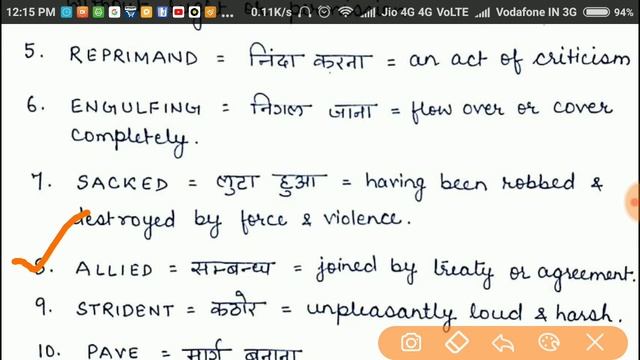 12:15 PM 0.11K/s Jio 4G 4G VoLTE Vodafone IN 3G 94%
5. REPRIMAND = निंदा करना = an act of criticism
6. ENGULFING = निगल जाना = flow over or cover
completely.
7. SACKED = लुटा हुआ = having been robbed &
destroyed by force & violence.
8. ALLIED = सम्बन्ध = joined by treaty or agreement.
9. STRIDENT = कठोर = unpleasantly loud & harsh.
10. PAVE = मार्ग बनाना